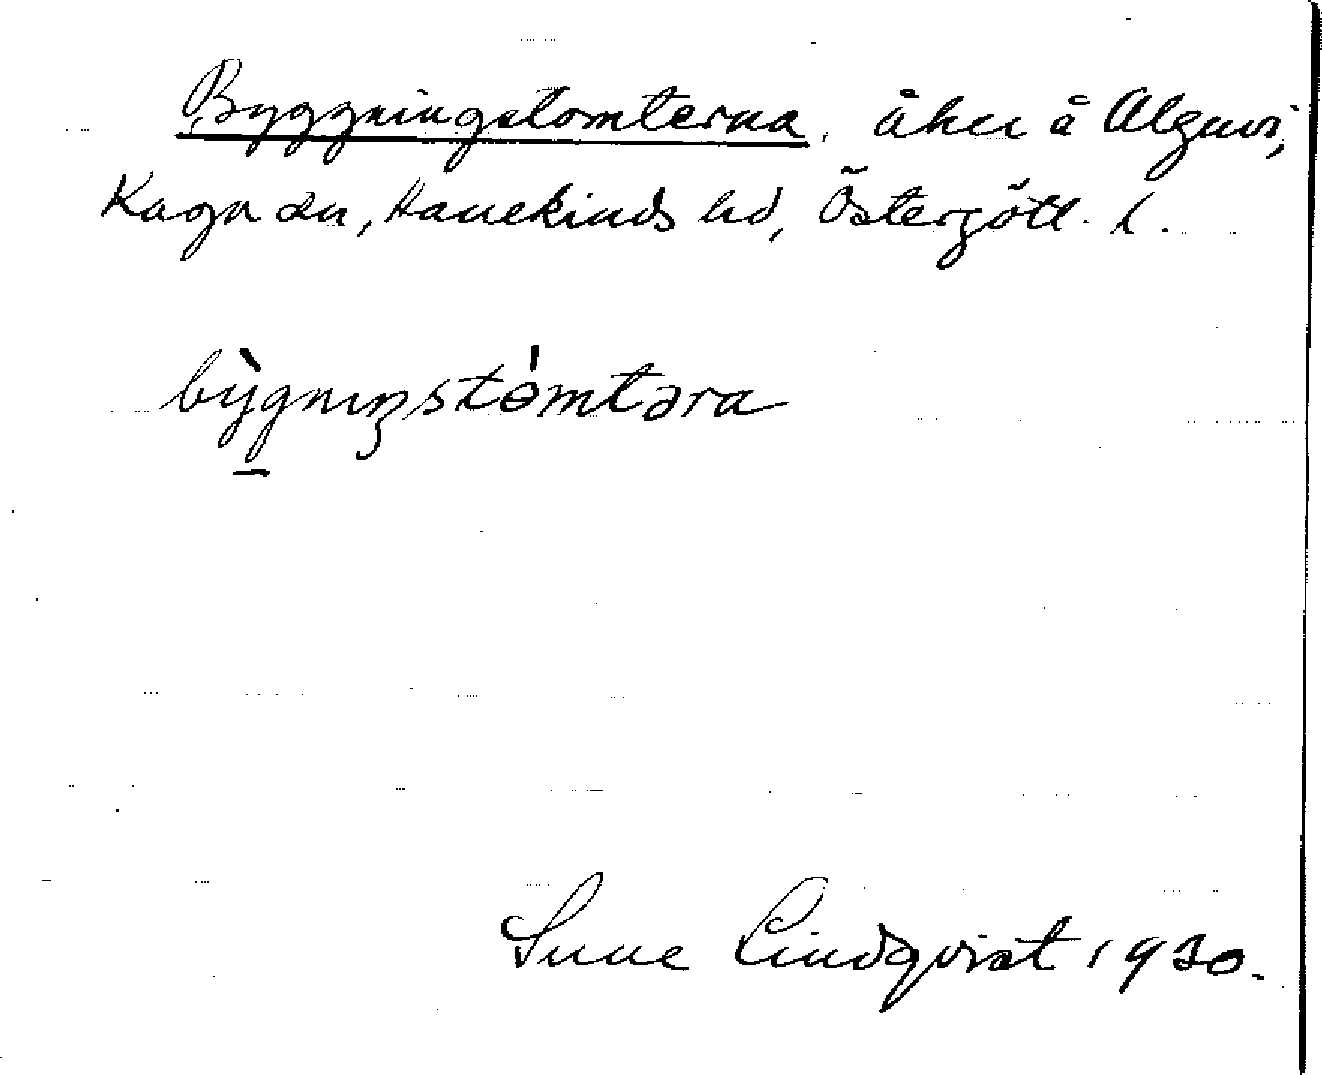 Byggningstomterna, åker å Algusvi,
Kaga sn, Hanekinds hd, Östergötl. l.
bỳgnıŋstómtəra
Sune Lindqvist 1930.